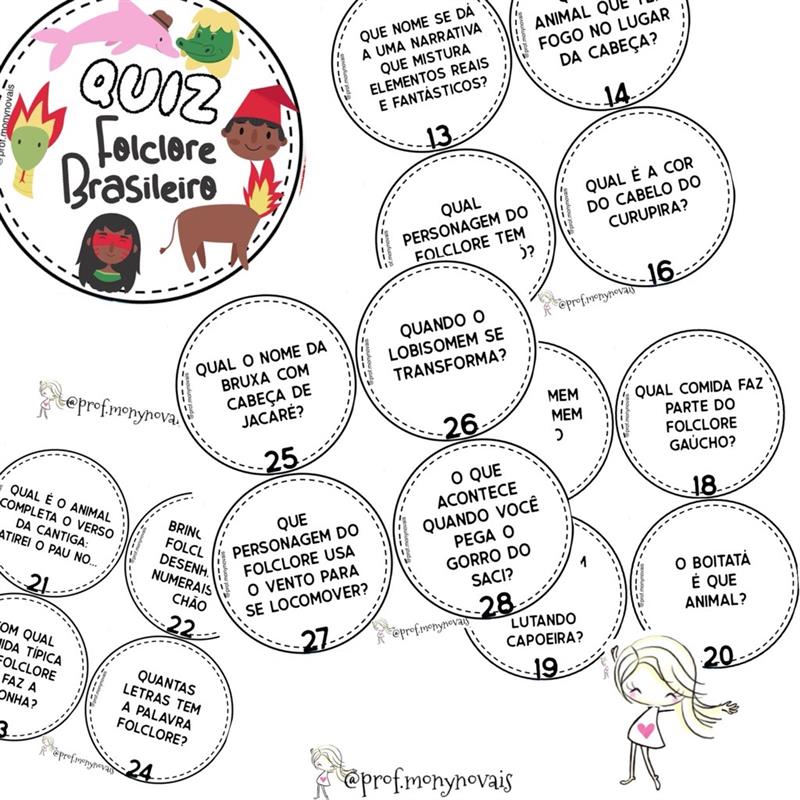 QUIZ
Folclore
Brasileiro
@prof.monynovais
QUE NOME SE DÁ
A UMA NARRATIVA
QUE MISTURA
ELEMENTOS REAIS
E FANTÁSTICOS?
13
ANIMAL QUE
FOGO NO LUGAR
DA CABEÇA?
14
QUAL
PERSONAGEM DO
FOLCLORE TEM
QUAL É A COR
DO CABELO DO
CURUPIRA?
16
@prof.monynovais
QUAL O NOME DA
BRUXA COM
CABEÇA DE
JACARÉ?
25
QUANDO O
LOBISOMEM SE
TRANSFORMA?
26
QUAL COMIDA FAZ
PARTE DO
FOLCLORE
GAÚCHO?
18
QUAL É O ANIMAL
COMPLETA O VERSO
DA CANTIGA:
ATIREI O PAU NO...
21
NUMERAIS
CHÃO
22
QUE
PERSONAGEM DO
FOLCLORE USA
O VENTO PARA
SE LOCOMOVER?
27
O QUE
ACONTECE
QUANDO VOCÊ
PEGA O
GORRO DO
SACI?
28
@prof.monynovais
LUTANDO
CAPOEIRA?
19
O BOITATÁ
É QUE
ANIMAL?
20
QUAL
TÍPICA
FOLCLORE
FAZ A
QUANTAS
LETRAS TEM
A PALAVRA
FOLCLORE?
24
@prof.monynovais